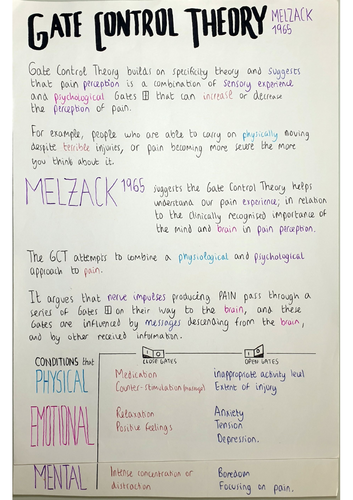 GATE CONTROL THEORY MELZACK
1965
Gate Control Theory builds on specificity theory and suggests
that pain perception is a combination of sensory experience
and psychological Gates that can increase or decrease
the perception of pain.
For example, people who are able to carry on physically moving
despite terrible injuries, or pain becoming more severe the more
you think about it.
MELZACK 1965 suggests the Gate Control Theory helps
understand our pain experience; in relation
to the clinically recognised importance of
the mind and brain in pain perception.
The GCT attempts to combine a physiological and psychological
approach to pain.
It argues that nerve impulses producing PAIN pass through a
series of Gates on their way to the brain, and these
Gates are influenced by messages descending from the brain,
and by other received information.
CONDITIONS that CLOSE GATES OPEN GATES
PHYSICAL Medication inappropriate activity level
Counter-stimulation (massage) Extent of injury
EMOTIONAL Relaxation Anxiety
Positive feelings Tension
Depression.
MENTAL Intense concentration or Boredom
distraction Focusing on pain.